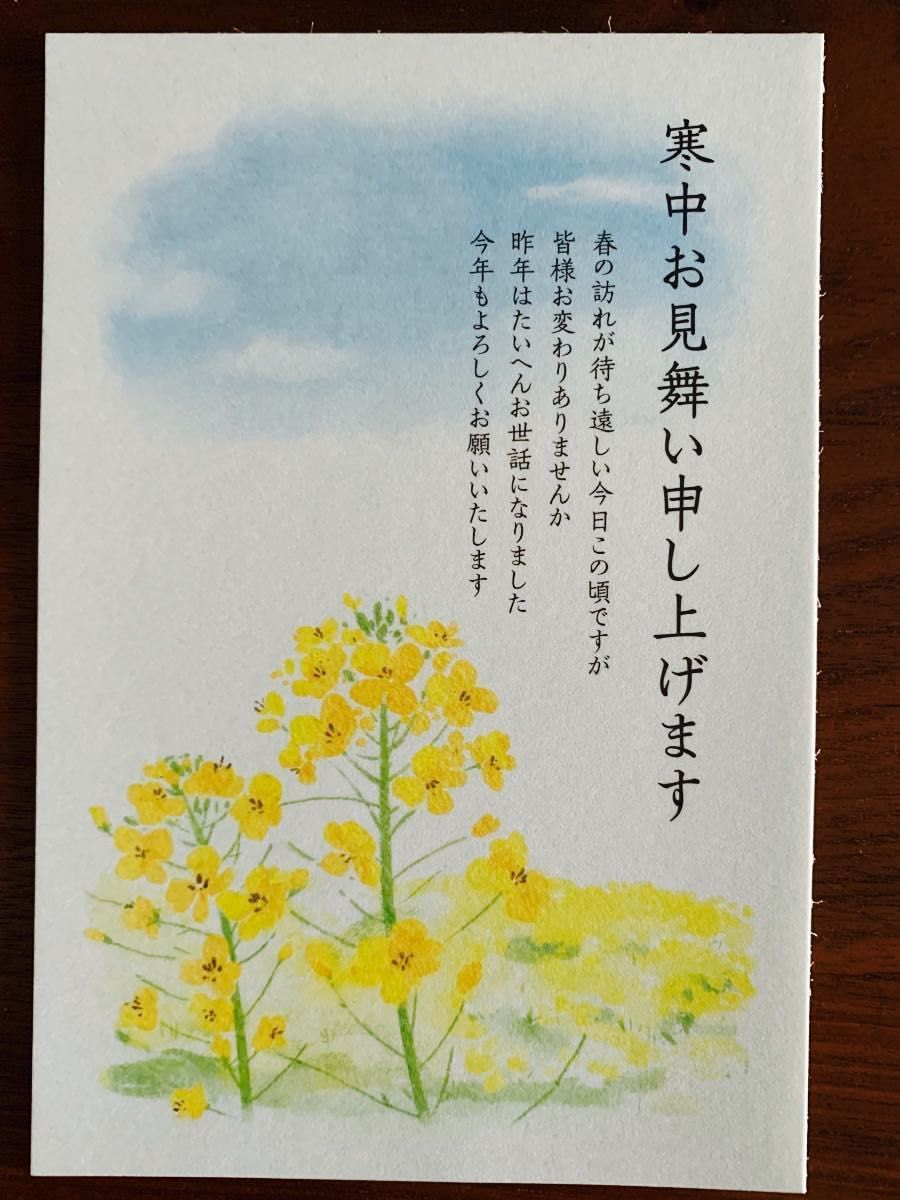 寒中お見舞い申し上げます
春の訪れが待ち遠しい今日この頃ですが
皆様お変わりありませんか
昨年はたいへんお世話になりました
今年もよろしくお願いいたします